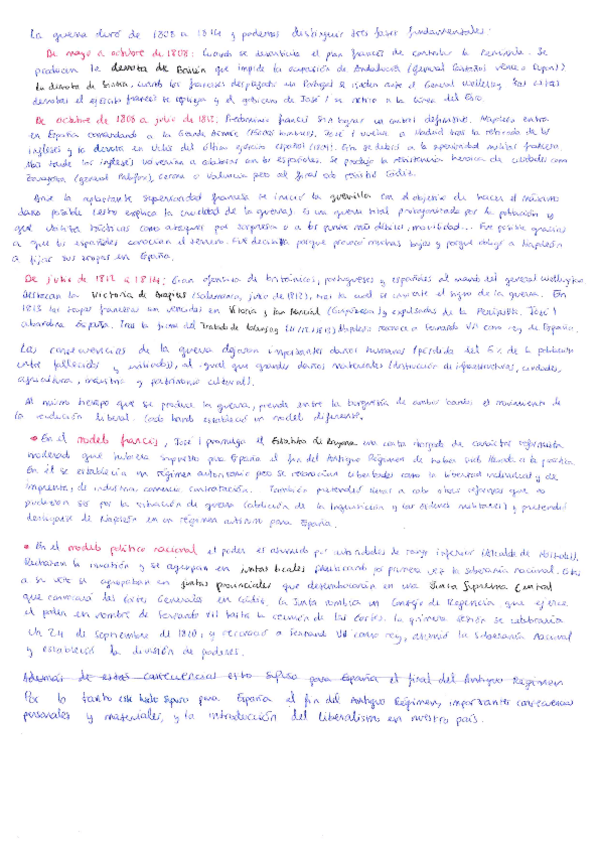 La guerra duró de 1808 a 1814 y podemos distinguir tres fases fundamentales:
De mayo a octubre de 1808: Cuando se desarticula el plan francés de controlar la Península. Se
producen la derrota de Bailén que impide la ocupación de Andalucía (general Castaños vence a Dupont)
La derrota de Sintra, cuando los franceses desplazados a Portugal se rinden ante el General Wellesley. Tras estas
derrotas el ejército francés se repliega y el gobierno de José I se retira a la línea del Ebro.
De octubre de 1808 a julio de 1812: Predominio francés sin lograr un control definitivo. Napoleón entra
en España comandando a la Grande Armée José I vuelve a Madrid tras la retirada de los
ingleses y la derrota en Uclés del último ejército español (1809). Esto se debió a la superioridad militar francesa.
Más tarde los ingleses volverían a colaborar con los españoles. Se produjo la resistencia heroica de ciudades como
Zaragoza (general Palafox), Gerona o Valencia pero al final solo resistió Cádiz.
Ante la aplastante superioridad francesa se inició la guerrilla con el objetivo de hacer el máximo
daño posible (esto explica la crueldad de la guerra). Es un guerra total protagonizada por la población
que utiliza tácticas como ataques por sorpresa o a los puntos más débiles, movilidad... Fue posible gracias
a que los españoles conocían el terreno. Fue decisiva porque provocó muchas bajas y porque obligó a Napoleón
a fijar sus tropas en España.
De julio de 1812 a 1814: Gran ofensiva de británicos, portugueses y españoles al mando del general Wellington
Destacan la Victoria de Arapiles (Salamanca, julio de 1812), tras la cual se invierte el signo de la guerra. En
1813 las tropas francesas son vencidas en Vitoria y San Marcial (Guipúzcoa) y expulsadas de la Península. José I
abandona España. Tras la firma del Tratado de Valençay (11/12/1813) Napoleón reconoce a Fernando VII como rey de España.
Las consecuencias de la guerra dejaron importantes daños humanos (pérdida del 6% de la población
entre fallecidos y exiliados), al igual que grandes daños materiales (destrucción de infraestructuras, ciudades,
agricultura, industria y patrimonio cultural).
Al mismo tiempo que se produce la guerra, prende entre la burguesía de ambos bandos el movimiento de
la revolución liberal. Cada bando estableció un modelo diferente.
• En el modelo francés, José I promulga el Estatuto de Bayona una carta otorgada de carácter reformista
moderado que hubiera supuesto para España el fin del Antiguo Régimen de haber sido llevada a la práctica
En él se establecía un régimen autoritario pero se reconocían libertades como la libertad individual y de
imprenta, de industria, comercio, contratación. También pretendió llevar a cabo otras reformas que no
pudieron ser por la situación de guerra (abolición de la Inquisición y las órdenes militares) y pretendió
desligarse de Napoleón en un régimen autónomo para España.
• En el modelo político nacional el poder es asumido por autoridades de rango inferior (Alcalde de Móstoles).
Rechazan la invasión y se agrupan en juntas locales por primera vez la soberanía nacional. Estas
a su vez se agrupaban en juntas provinciales que desembocarían en una Junta Suprema Central
que convocará las Cortes Generales en Cádiz. La Junta nombra un Consejo de Regencia que ejerce
el poder en nombre de Fernando VII hasta la reunión de las Cortes. La primera sesión se celebraría
un 24 de septiembre de 1810, y reconoció a Fernando VII como rey, asumió la soberanía nacional
y estableció la división de poderes.
Además de estas consecuencias esto supuso para España el final del Antiguo Régimen
Por lo tanto este hecho supuso para España el fin del Antiguo Régimen, importantes consecuencias
personales y materiales, y la introducción del liberalismo en nuestro país.